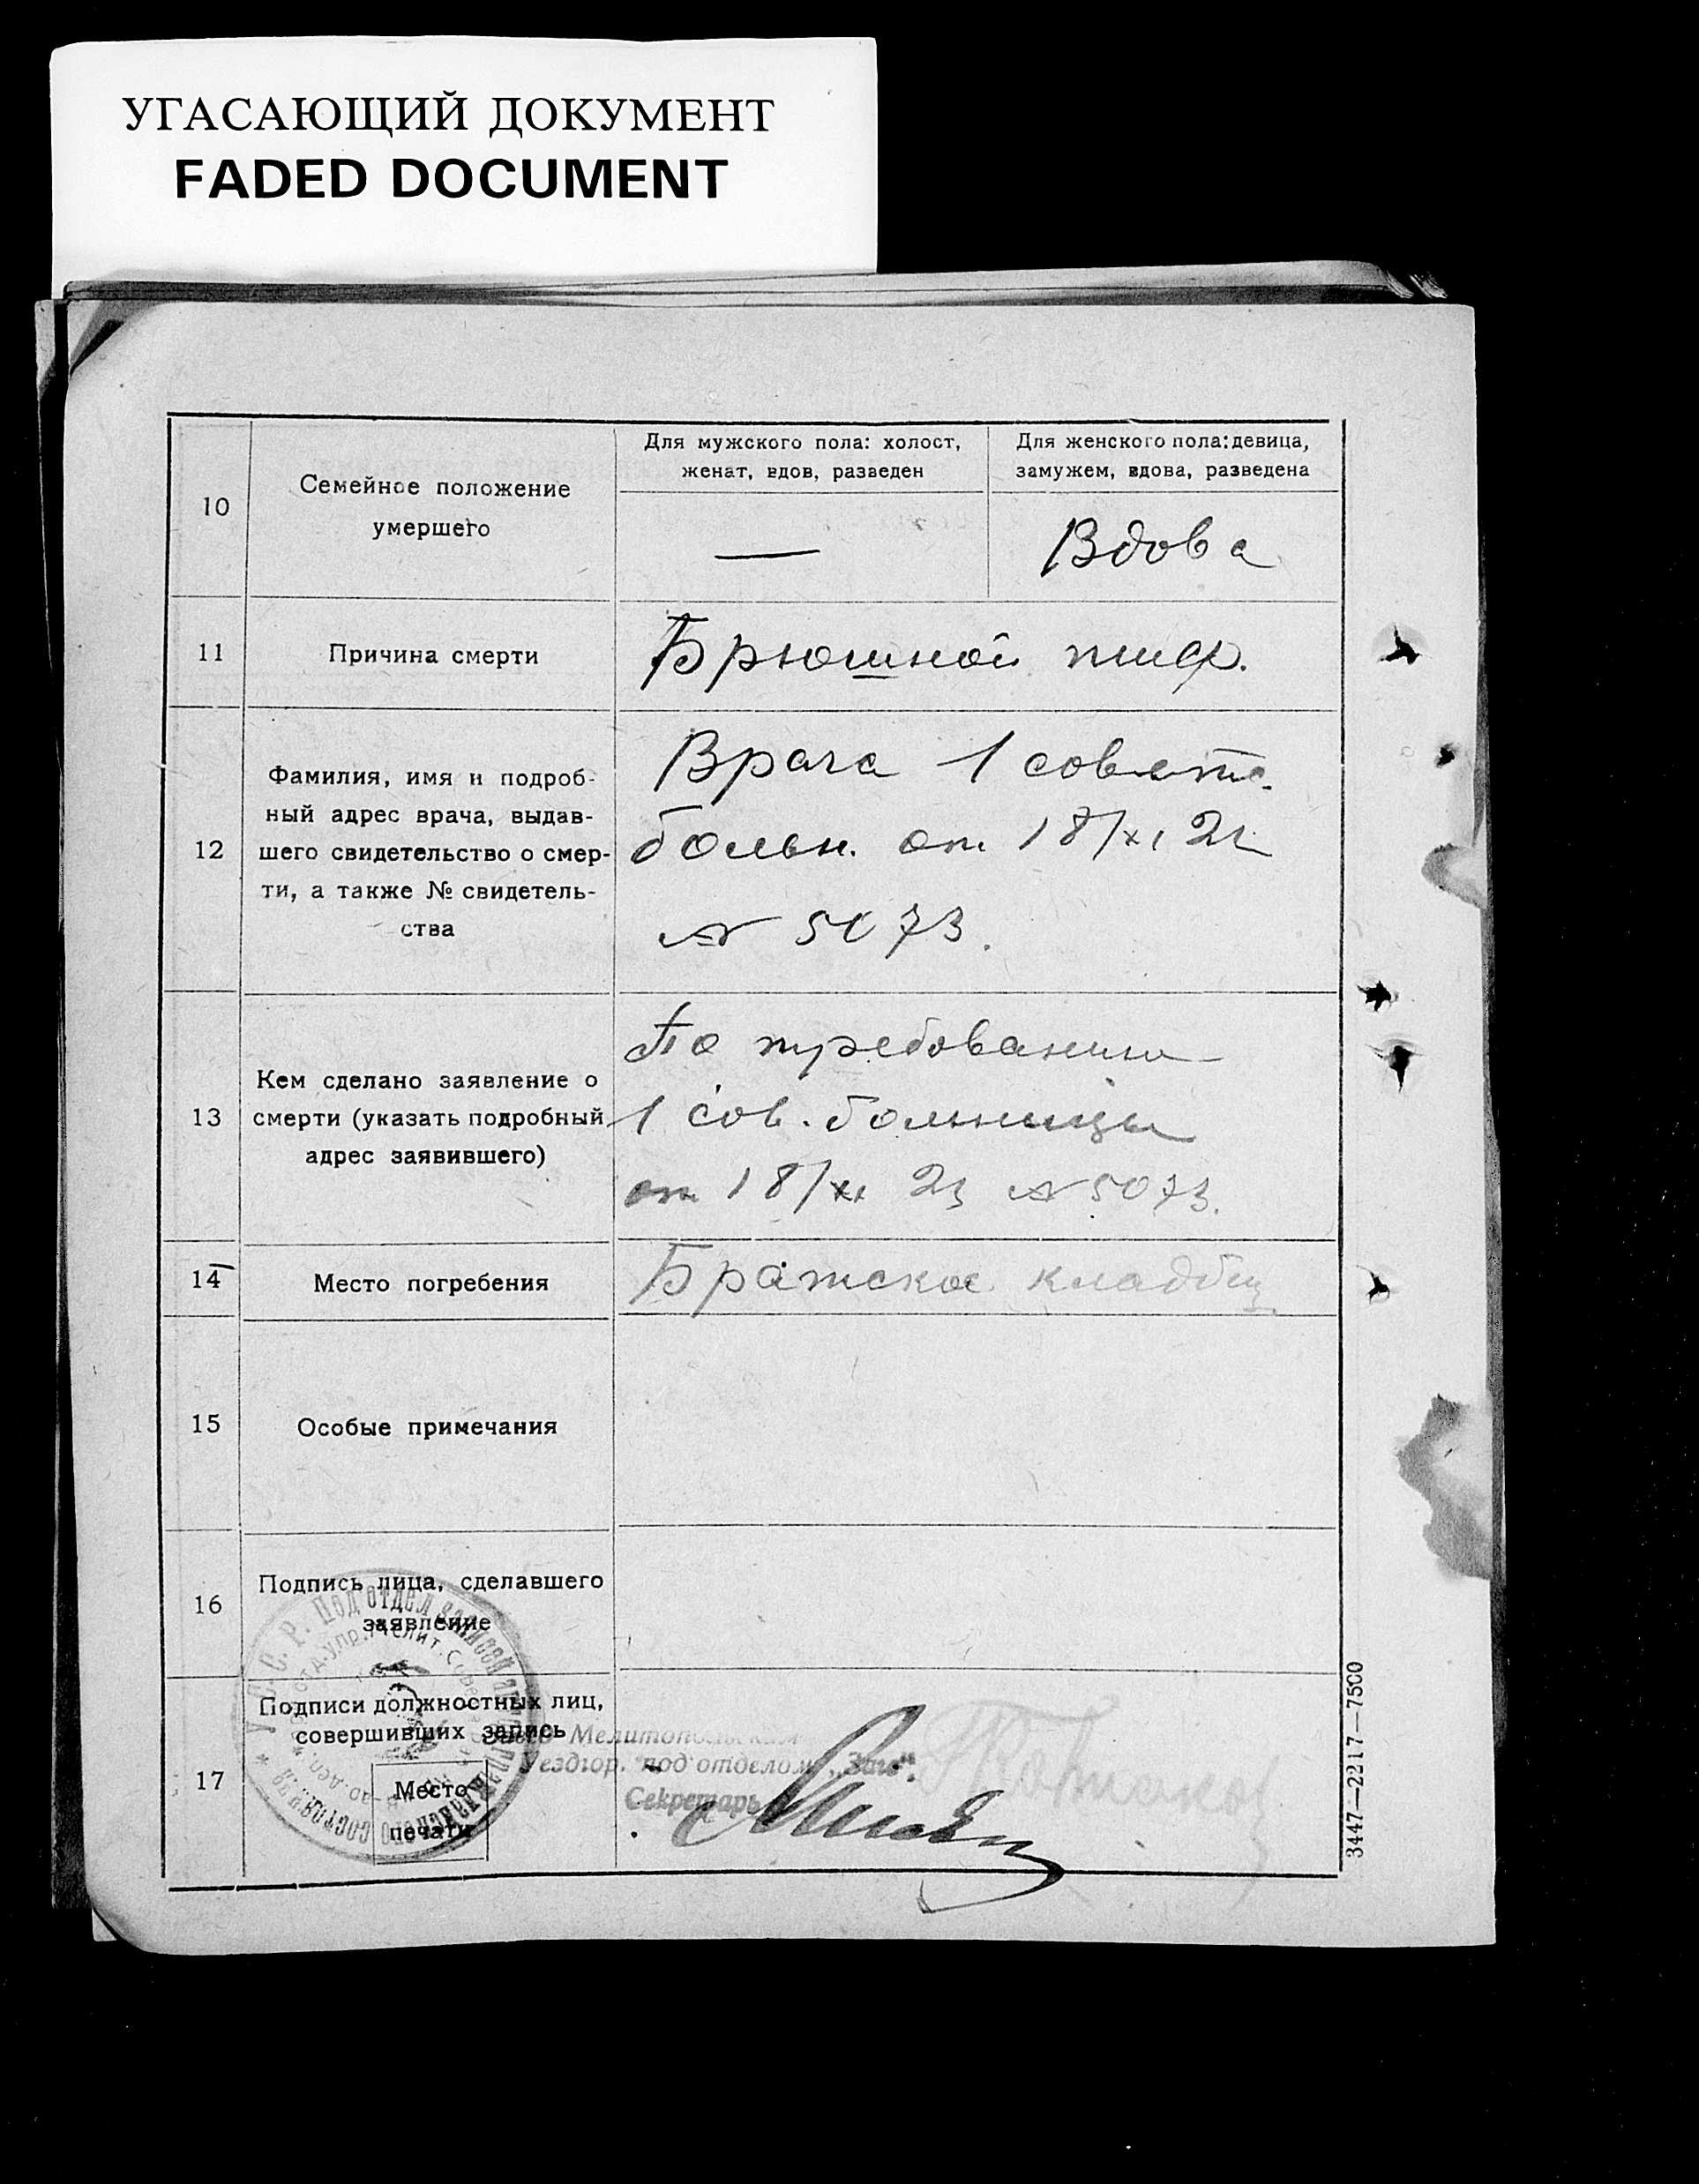 УГАСАЮЩИЙ ДОКУМЕНТ
FADED DOCUMENT
10
Семейное положение
умершего
Для мужского пола: холост,
женат, вдов, разведен
—
Для женского пола: девица,
замужем, вдова, разведена
Вдова
11
Причина смерти
Брюшной тиф.
12
Фамилия, имя и подроб-
ный адрес врача, выдав-
шего свидетельство о смер-
ти, а также № свидетель-
ства
Врача 1 советс.
больн. от 18/XI 21
№ 5073.
13
Кем сделано заявление о
смерти (указать подробный
адрес заявившего)
По требованию
1 сов. больницы
от 18/XI 21 № 5073.
14
Место погребения
Братское кладбищ.
15
Особые примечания
16
Подпись лица, сделавшего
заявление
17
Подписи должностных лиц,
совершивших запись
Место
печати
У. С. С. Р. Подотдел записей актов гражданского состояния
Мелитопольским
Уездгор. подотделом „Загс“.
Секретарь
3447—2217—7500